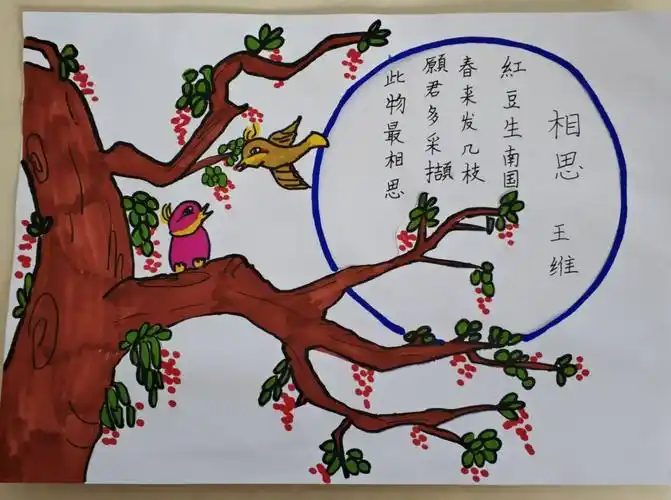 相思
王维
紅豆生南国
春来发几枝
願君多采擷
此物最相思